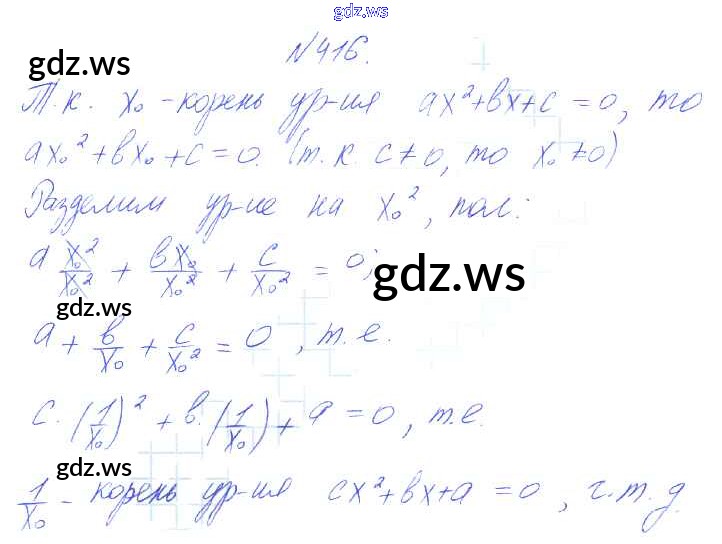 gdz.ws
№416.
gdz.ws
Т.к. x₀ - корень ур-ия ax²+bx+c=0, то
ax₀²+bx₀+c=0. (т.к. c≠0, то x₀≠0)
Разделим ур-ие на x₀², пол:
a x₀²/x₀² + bx₀/x₀² + c/x₀² = 0;
gdz.ws
gdz.ws
a + b/x₀ + c/x₀² = 0, т.е.
c·(1/x₀)² + b·(1/x₀) + a = 0, т.е.
gdz.ws
1/x₀ - корень ур-ия cx²+bx+a=0, ч.т.д.